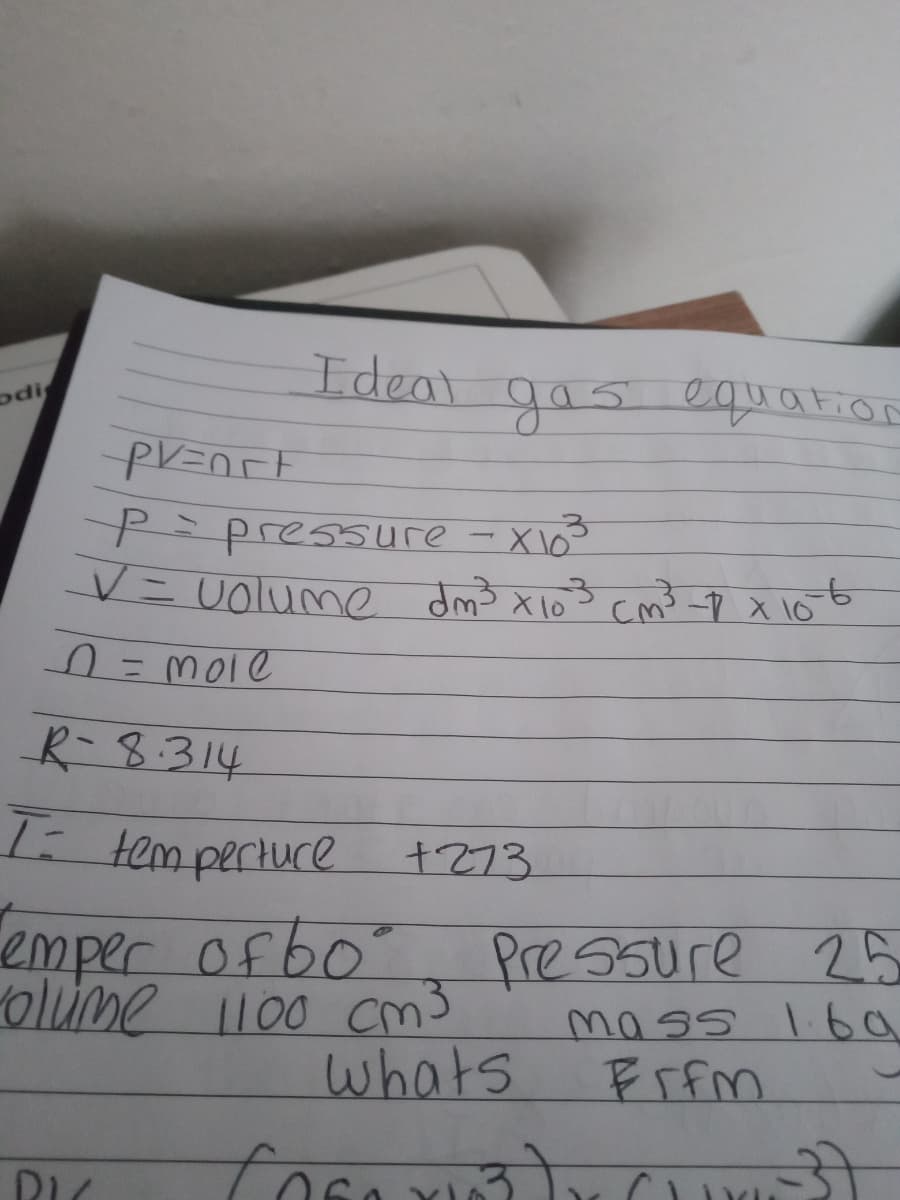 Ideal gas equation
odi
PV=nrt
P = pressure - x10³
V = volume dm³ x10⁻³ cm³ - x 10⁻⁶
n = mole
R- 8.314
T= temperture +273
Temper of 60° Pressure 25
Volume 1100 cm³ mass 1.6g
Whats rfm
PV